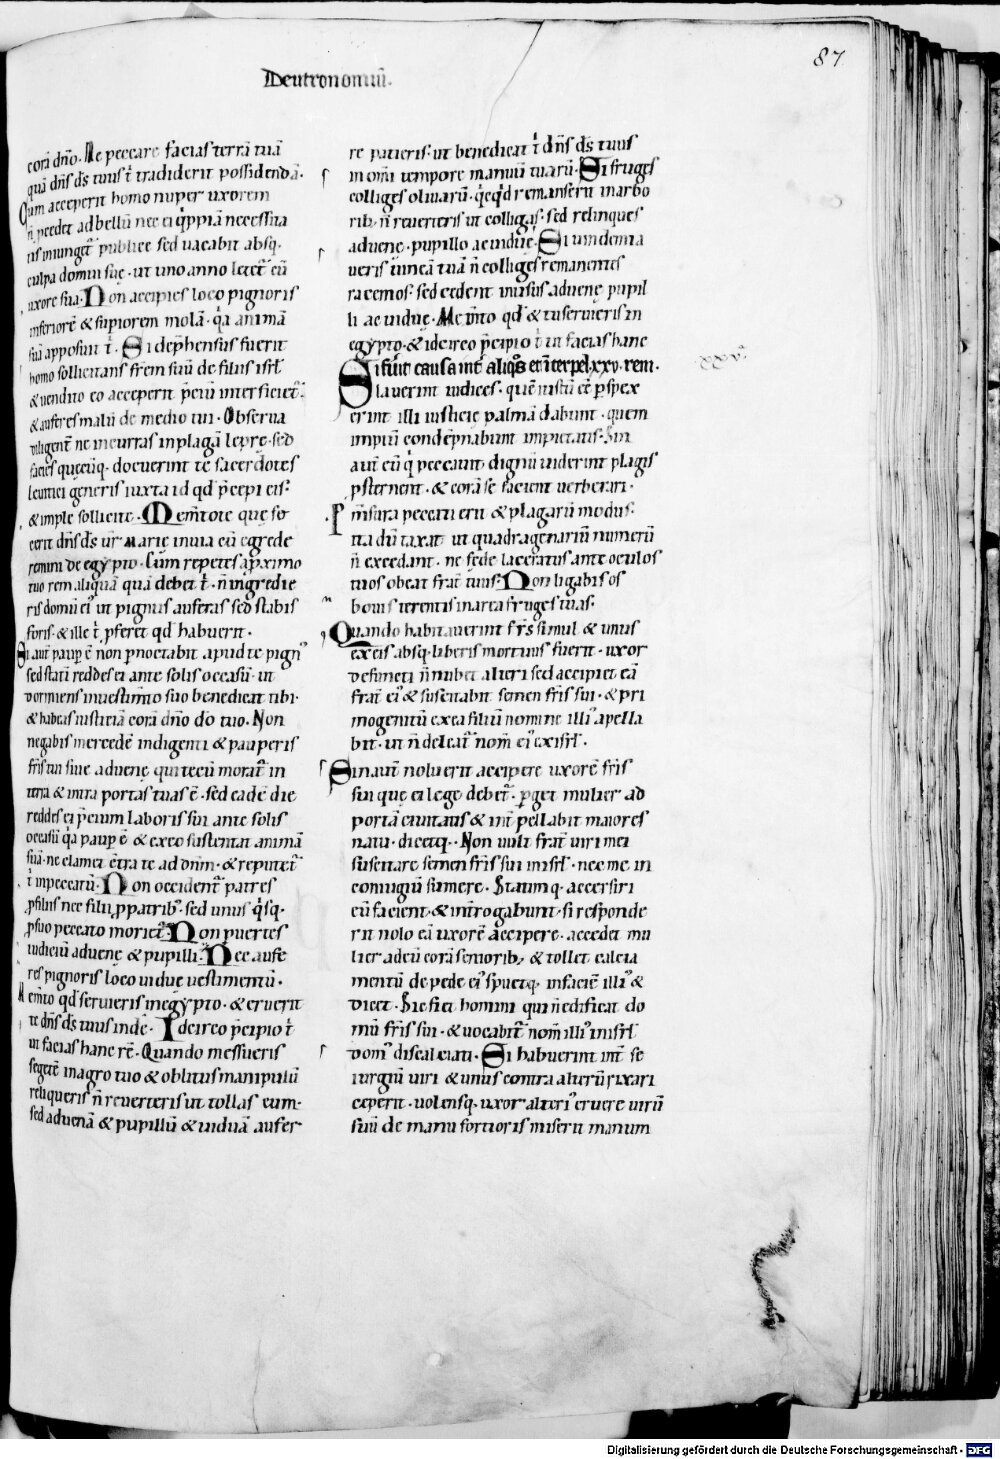 87
Deutronomiū.
corā dn̄o. Ne peccare facias terrā tuā
quā dn̄s d̄s tuus t̄ tradiderit possidendā.
Cum acceperit homo nuper uxorem
n̄ p̄cedet ad bellū nec ei q̇ppiā necessita
tis iniunget̄ publice sed uacabit absq;
culpa domui suę. ut uno anno letet̄ cū
uxore sua. Non accipies loco pignoris
inferiorē & sup̄iorem molā. q̇a animā
suā apposuit t̄. Si dep̄hensus fuerit
homo sollicitans fr̄em suū de filiis isrl̄
& uendito eo acceperit p̄ciū interficiet̄.
& auferes malū de medio tui. Observa
diligent̄ ne incurras in plagā lepre. sed
facies quecūq; docuerint te sacerdotes
leuitici generis iuxta id qd̄ p̄cepi eis.
& imple sollicite. Mem̄tote que fe
cerit dn̄s d̄s ur̄ marie in uia cū egrede
remini de egypto. Cum repetes a p̄ximo
tuo rem aliquā quā debet t̄. n̄ ingredie
ris domū ei᾽ ut pignus auferas sed stabis
foris. & ille t̄ p̄feret qd̄ habuerit.
Si aut̄ paup̄ ē non p̄noctabit apud te pign᾽
sed statī reddes ei ante solis occasū. ut
dormiens in uestim̄to suo benedicat tibi.
& habeas iustitiā corā dn̄o d̄o tuo. Non
negabis mercedē indigenti & pauperis
fr̄is tui siue aduenę qui tecū morat̄ in
terra & intra portas tuas ē. sed eadē die
reddes ei p̄cium laboris sui ante solis
occasū q̇a paup̄ ē & ex eo sustentat animā
suā. ne clamet c̄tra te ad dn̄m. & reputet̄
t̄ in peccatū. Non occident̄ patres
p̄ filiis nec filii p̄ patrib᾽. sed unus q̇sq;
p̄ suo peccato moriet̄. Non puertes
iudiciū aduenę & pupilli. Nec aufe
res pignoris loco uiduę uestimentū.
Mem̄to qd̄ seruieris in egypto. & eruerit
te dn̄s d̄s tuus inde. Idcirco p̄cipio t̄
ut facias hanc rē. Quando messueris
segetē in agro tuo & oblitus manipulū
reliqueris n̄ reuerteris ut tollas eum.
sed aduenā & pupillū & uiduā aufer
re patieris. ut benedicat t̄ dn̄s d̄s tuus
in om̄i tempore manuū tuarū. Si fruges
colliges oliuarū. q̇cq̇d remanserit in arbo
rib. n̄ reuerteris ut colligas. sed relinques
aduenę. pupillo ac uiduę. Si uindemia
ueris uineā tuā n̄ colliges remanentes
racemos. sed cedent in usus aduenę pupil
li ac uiduę. Mem̄to qd̄ & tu seruieris in
egypto. & idcirco p̄cipio t̄ ut facias hanc
rem.
Si fuīt causa int̄ aliq̊s et īterpel. xxv.
xxv
laverint iudices. quē iustū eē p̄spex
erint illi iusticię palmā dabunt. quem
impiū condēpnabunt impietatis. Sin
aut̄ eū q̇ peccauit dignū uiderint plagis
p̄sternent. & corā se facient uerberari.
P̄ m̄sura peccati erit & plagarū modus.
ita dū taxat ut quadragenariū numerū
n̄ excedant. ne fede laceratus ante oculos
tuos obeat frat̄ tuus. Non ligabis os
bouis terentis in area fruges tuas.
Quando habitauerint fr̄s simul & unus
ex eis absq; liberis mortuus fuerit. uxor
defuncti n̄ nubet alteri sed accipiet eā
frat̄ ei᾽ & suscitabit semen fr̄is sui. & pri
mogenitū ex ea filiū nomine illi᾽ apella
bit. ut n̄ deleat̄ nom̄ ei᾽ ex isrl̄.
Sin aut̄ noluerit accipere uxorē fr̄is
sui que ei lege debet̄. p̄get mulier ad
portā ciuitatis & int̄pellabit maiores
natu. dicetq;. Non uult frat̄ uiri mei
suscitare semen fr̄is sui in isrl̄. nec me in
coniugiū sumere. Statimq; accersiri
eū facient. & int̄rogabunt. si responde
rit nolo eā uxorē accipere. accedet mu
lier ad eū corā seniorib; & tollet calcia
mentū de pede ei᾽ spuetq; in faciē illi᾽ &
dicet. Sic fiet homini qui n̄ edificat do
mū fr̄is sui. & uocabit̄ nom̄ illi᾽ in isrl̄
dom᾽ discalciati. Si habuerint int̄ se
iurgiū uiri & unus contra alterū rixari
ceperit. uolensq; uxor alteri᾽ eruere uirū
suū de manu fortioris miserit manum
Digitalisierung gefördert durch die Deutsche Forschungsgemeinschaft - DFG